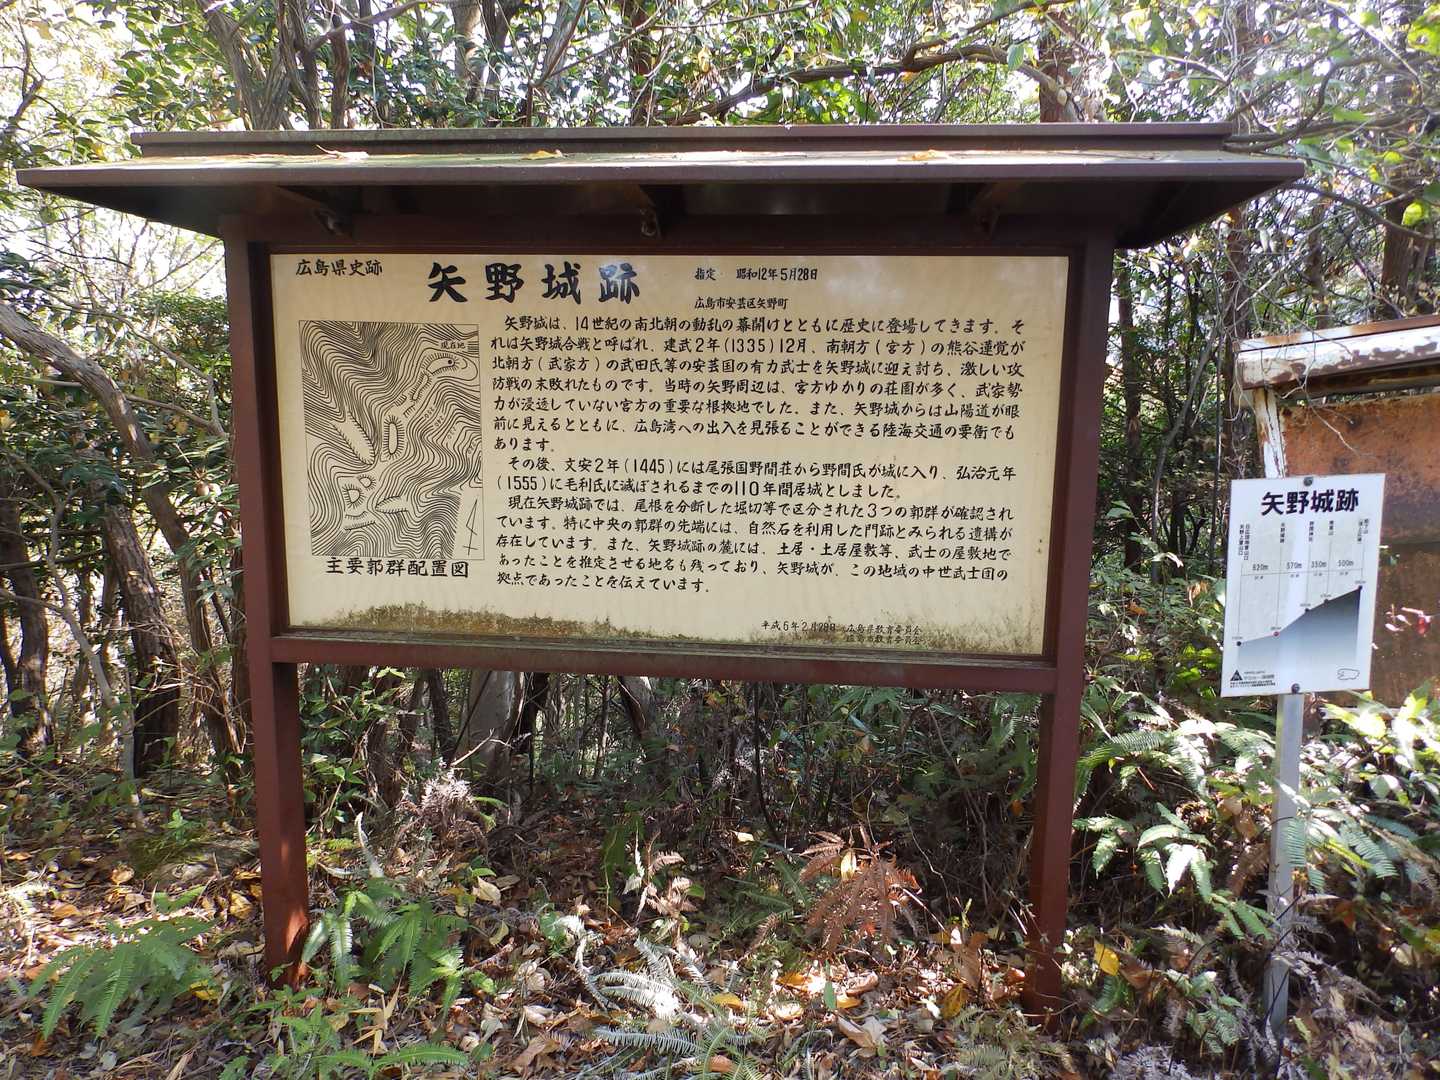 広島県史跡
矢野城跡
指定 昭和12年5月28日
広島市安芸区矢野町
矢野城は、14世紀の南北朝の動乱の幕開けとともに歴史に登場してきます。そ
れは矢野城合戦と呼ばれ、建武2年(1335)12月、南朝方(宮方)の熊谷蓮覚が
北朝方(武家方)の武田氏等の安芸国の有力武士を矢野城に迎え討ち、激しい攻
防戦の末敗れたものです。当時の矢野周辺は、宮方ゆかりの荘園が多く、武家勢
力が浸透していない宮方の重要な根拠地でした。また、矢野城からは山陽道が眼
前に見えるとともに、広島湾への出入を見張ることができる陸海交通の要衝でも
あります。
その後、文安2年(1445)には尾張国野間荘から野間氏が城に入り、弘治元年
(1555)に毛利氏に滅ぼされるまでの110年間居城としました。
現在矢野城跡では、尾根を分断した堀切等で区分された3つの郭群が確認され
ています。特に中央の郭群の先端には、自然石を利用した門跡とみられる遺構が
存在しています。また、矢野城跡の麓には、土居・土居屋敷等、武士の屋敷地で
あったことを推定させる地名も残っており、矢野城が、この地域の中世武士団の
拠点であったことを伝えています。
平成6年2月28日 広島県教育委員会
広島市教育委員会
現在地
主要郭群配置図
矢野城跡
620m 570m 350m 500m